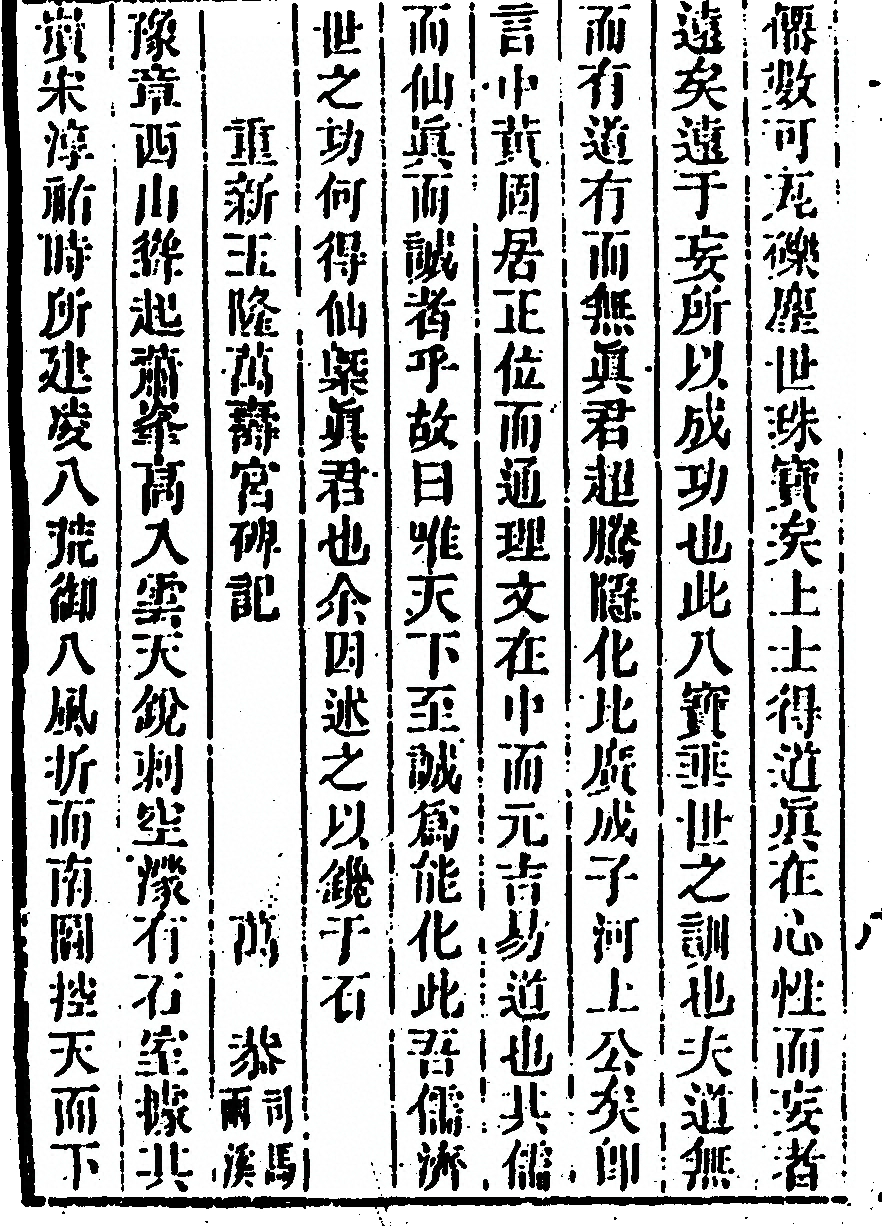 儒數可瓦礫塵世珠寶矣上士得道眞在心性而妄者
遠矣遠于妄所以成功也此八寶垂世之訓也夫道無
而有道有而無眞君超騰隱化比廣成子河上公矣卽
言中黃固居正位而通理文在中而元吉易道也其儒
而仙眞而誠者乎故曰唯天下至誠爲能化此吾儒濟
世之功何得仙槩眞君也余因述之以鐫于石
重新玉隆萬壽宮碑記 萬 恭 司馬兩溪
豫章西山聳起蕭峯高入雲天銳刺空濛有石室據其
巓宋淳祐時所建凌八荒御八風折而南闢控天而下
八